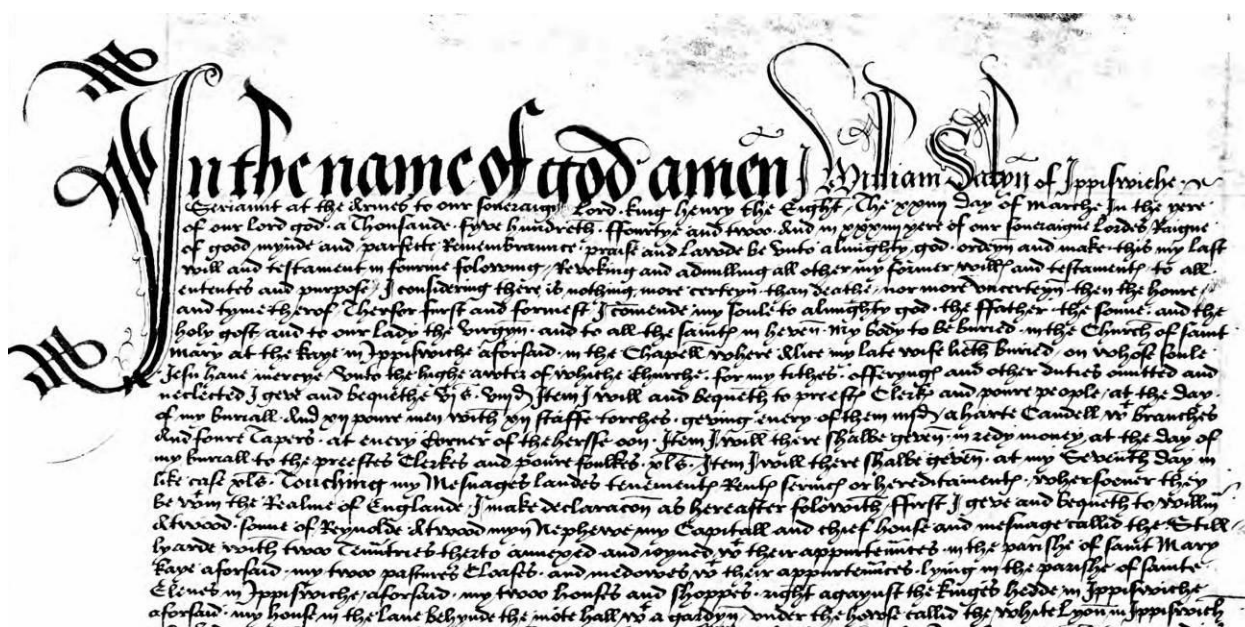 In the name of god amen I William Sabyn of Ippiswiche
Seriaunt at the Armes to our soueraign Lord king henry the Eight The xxiiij day of Marche In the yere
of our lord god a Thousande fyve hundreth ffourtye and twoo And in xxxiiij yere of our soueraigne Lordes Raigne
of good mynde and parfecte Remembraunce praise and Lawde be vnto almighty god ordeyn and make this my Last
will and testament in fourme folowing Revoking and adnulling all other my former will and testament to all
ententes and purpose I considering there is nothing more certeyn than deathe nor more vncerteyn then the houre
and tyme therof Therfor furst and formest I comende my soule to almighty god the ffather the sonne and the
holy gost and to our lady the virgyn and to all the saint in heven My body to be buried in the Church of saint
Mary at the kaye in Ippiswiche aforsaid in the Chapell where Alice my late wife lieth buried on whose soule
Jesu haue mercye Vnto the highe awter of whiche Churche for my tithes offeryng and other duties omitted and
neclected I geve and bequethe vjs viijd Item I will and bequeth to preest Clerk and poure people at the day
of my buriall And xij poure men with xij staffe torches geving euery of them iiijd a harte Candell wt branches
And foure Tapers at euery Corner of the hersse oon Item I will there shalbe geven in redy money at the day of
my buriall to the preestes Clerkes and poure foulkes xls Item I will there shalbe geven at my Seventh day in
like case xls Touching my Mesuages landes tenement Rent seruic or hereditament whersoeuer they
be wtin the Realme of Englande I make declaracon as hereafter folowith ffirst I geve and bequeth to willm
Atwood sonne of Reynolde Atwood myn Nephewe my Capitall and chief house and mesuage called the Still
yarde with twoo Tenntries therto annexed and ioyned wt their appurtennces in the parishe of saint Mary
kaye aforsaid my twoo pastures Cloases and medowes wt their appurtennces lying in the parishe of sainte
Elenes in Ippiswiche aforsaid my twoo houses and shoppes right agaynst the kinges hedde in Ippiswiche
aforsaid my house in the lane behynde the mote hall wt a gardyn vnder the howse callid the white lyon in Ippiswich